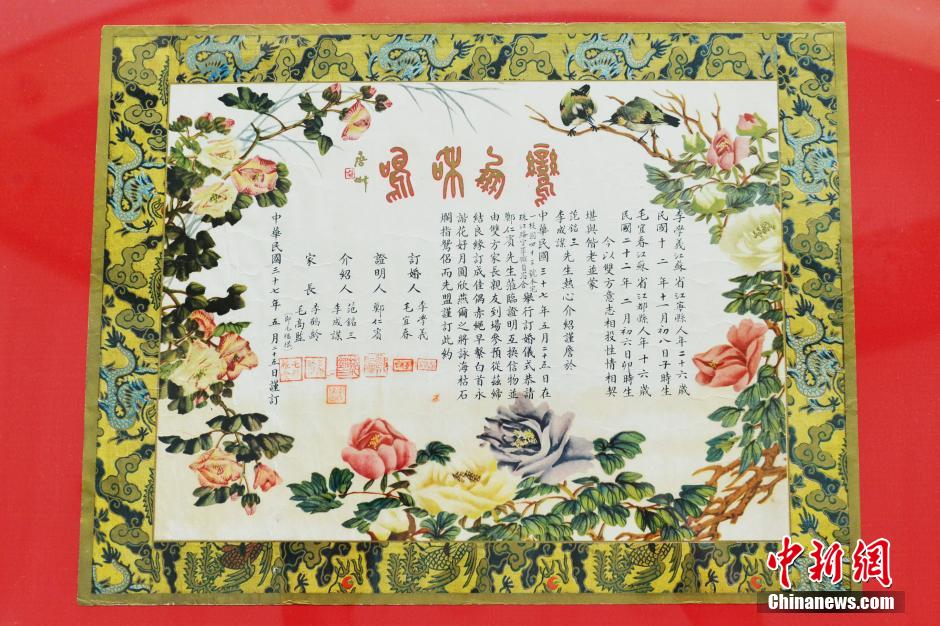 鸞翔和鳴
李學義江蘇省江寧縣人年二十六歲
民國十二年十一月初八日子時生
毛宜春江蘇省江都縣人年十六歲
民國二十二年二月初六日卯時生
今以雙方意志相投性情相契
堪與偕老並蒙
范銘三
李成謀
先生熱心介紹謹詹於
中華民國三十七年五月二十五日在
舉行訂婚儀式恭請
鄭仁賓先生蒞臨證明互換信物並
由雙方家長親友到場參預從茲締
結良緣訂成佳偶赤繩早繫白首永
諧花好月圓欣燕爾之將詠海枯石
爛指鴛侶而先盟謹訂此約
訂婚人
李學義
毛宜春
證明人
鄭仁賓
介紹人
范銘三
李成謀
家長
李鶴齡
毛高鑑
中華民國三十七年五月二十五日謹訂
中新網
Chinanews.com